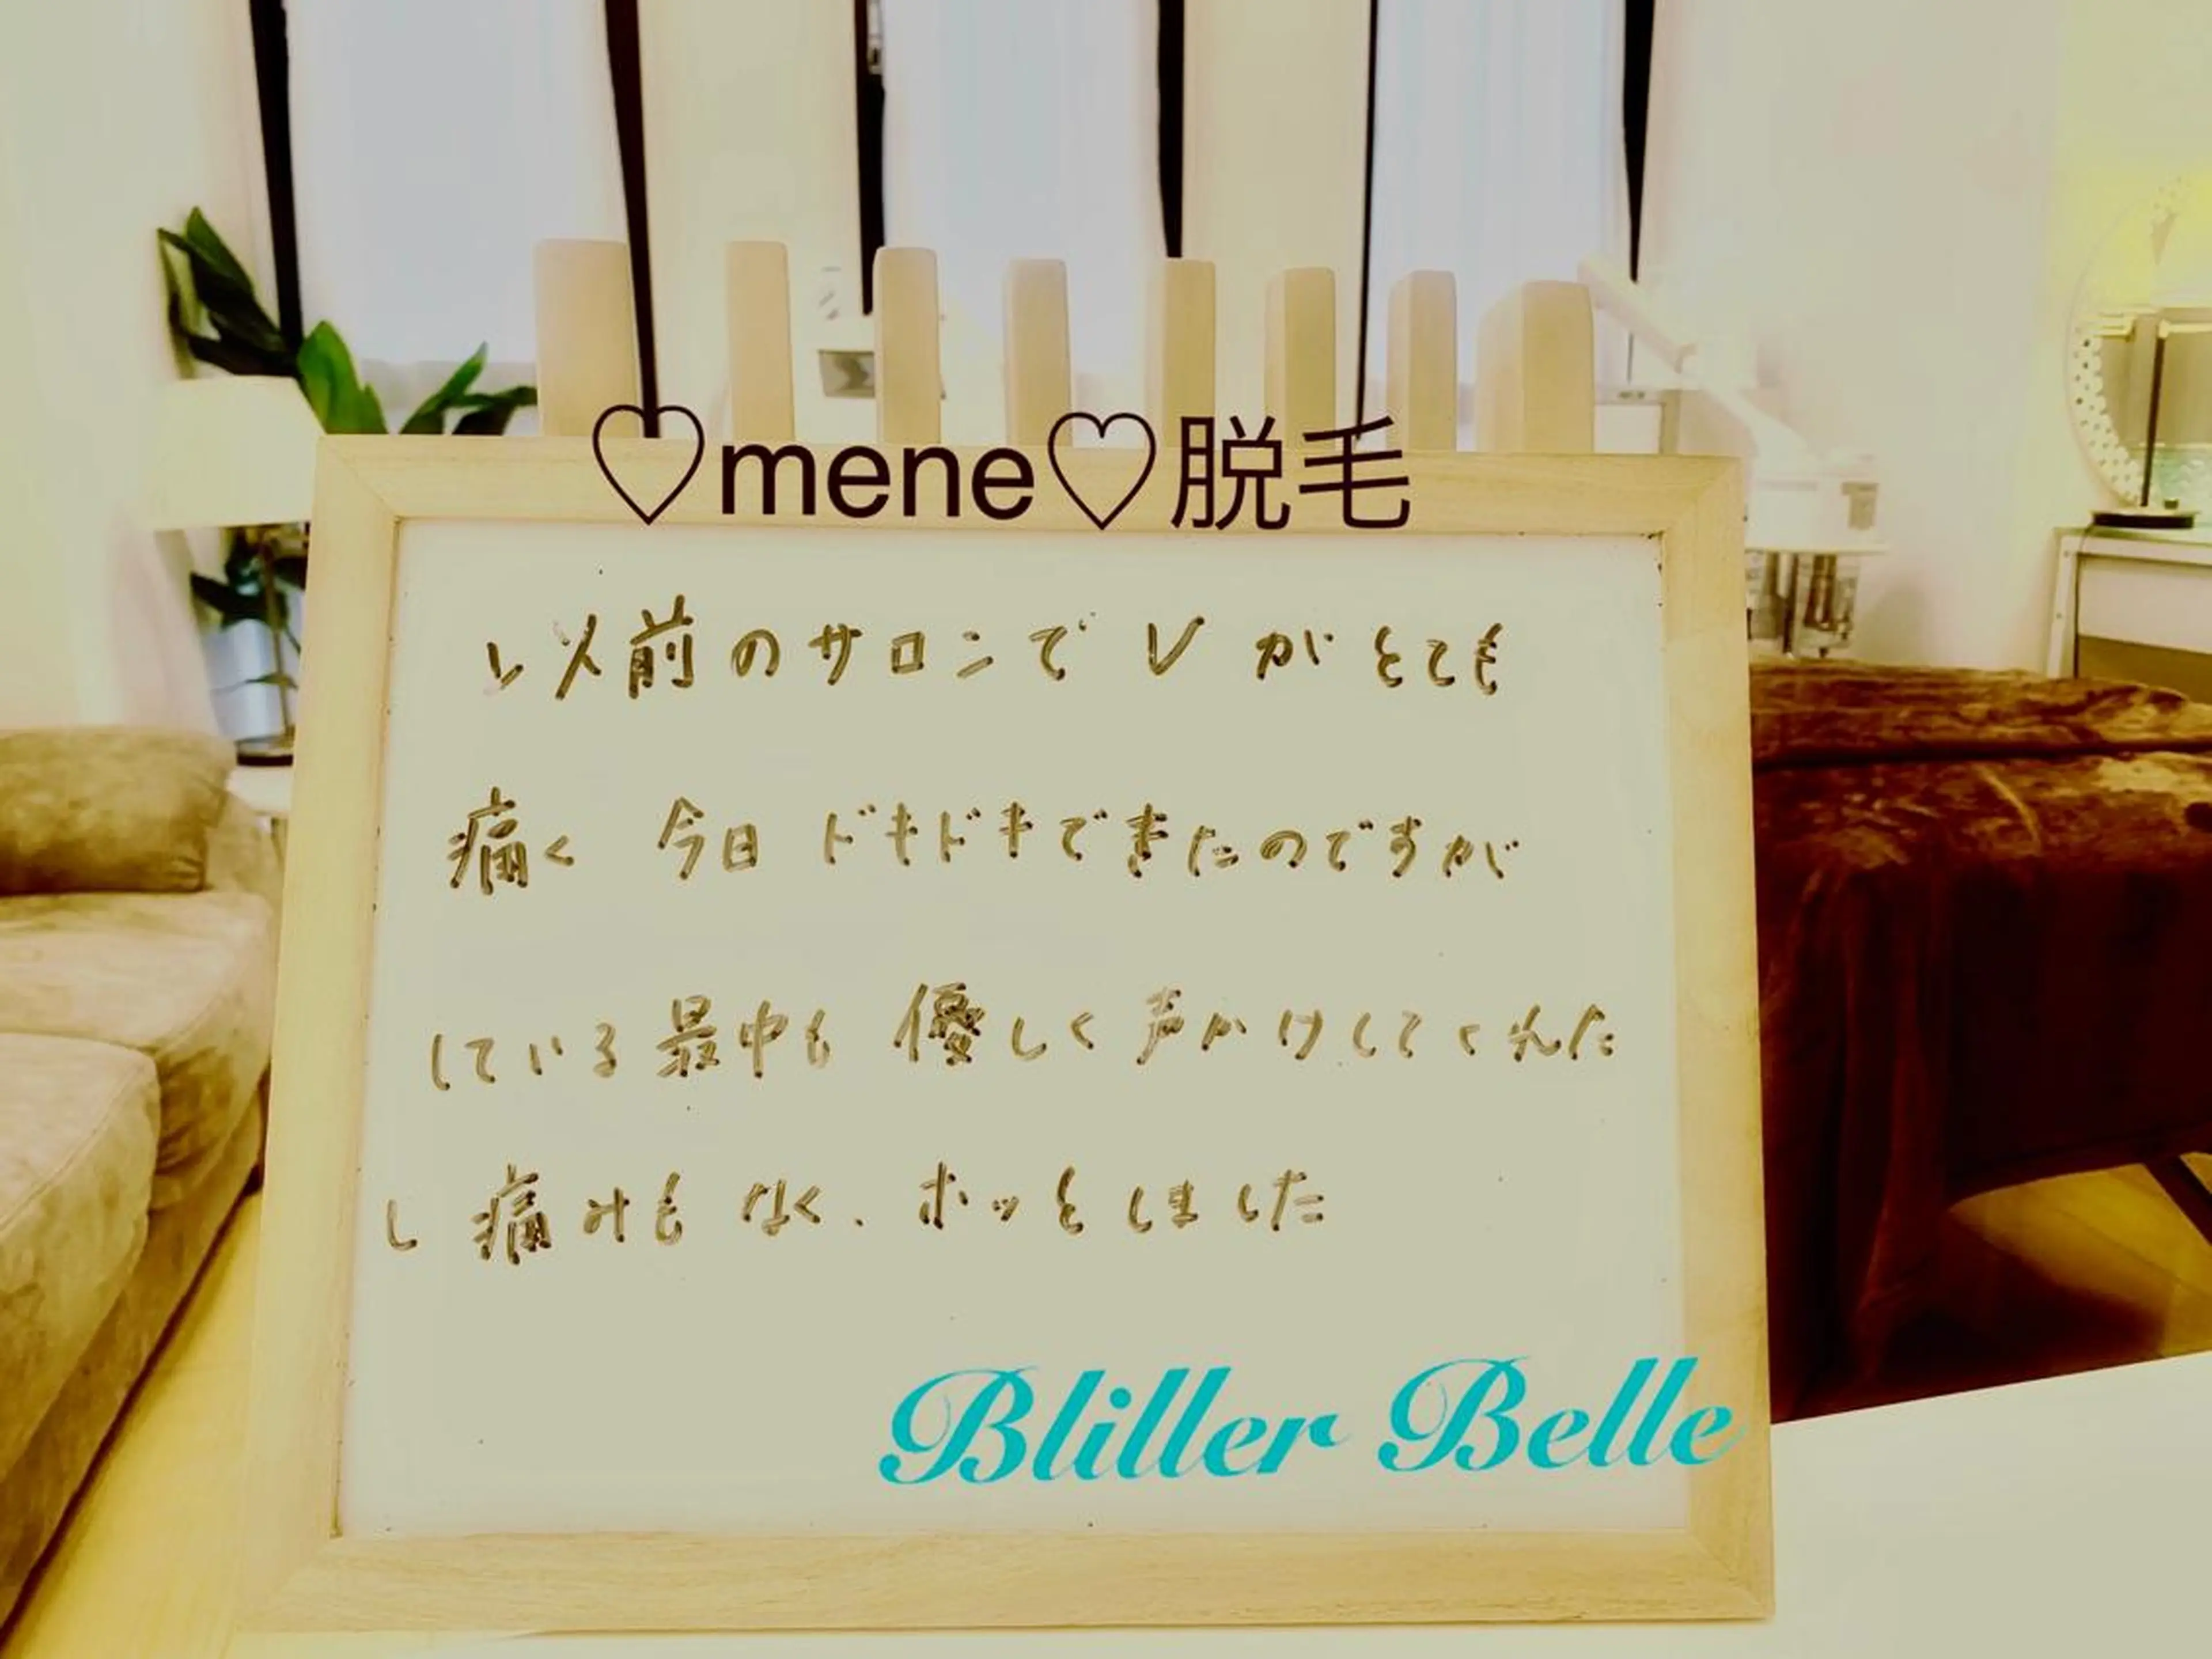 ♡mene♡脱毛
以前のサロンで V がとても
痛く 今日 ドキドキできたのですが
している最中も 優しく声かけしてくれた
し 痛みも なく、ホッとしました
Bliller Belle